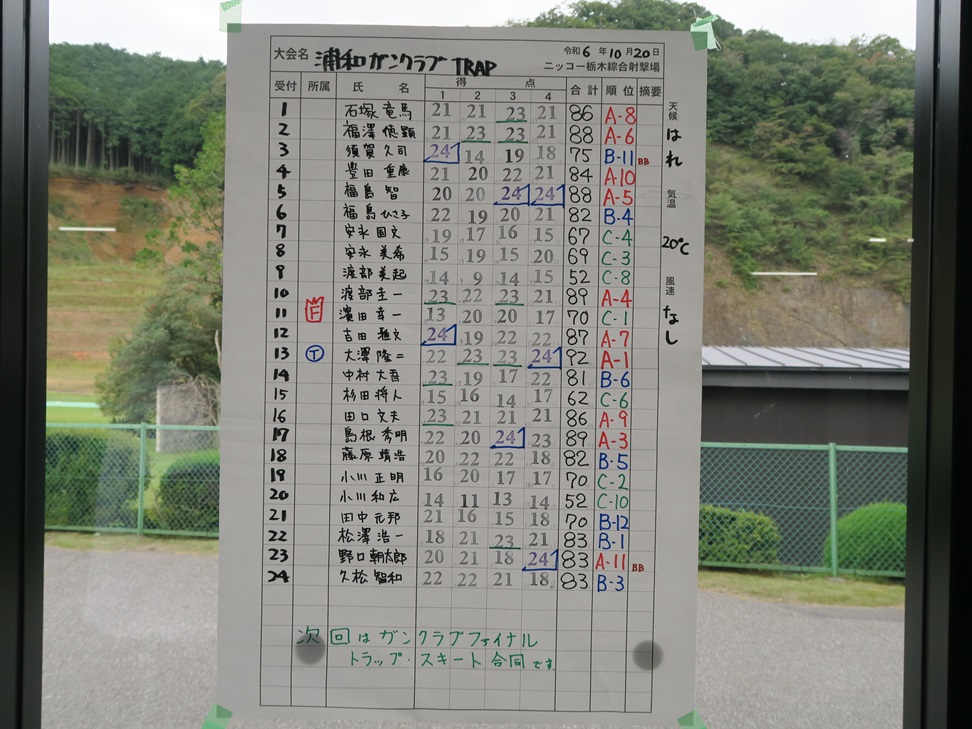 大会名 浦和ガンクラブ TRAP
令和6年10月20日
ニッコー栃木綜合射撃場
受付 所属 氏名 得点 合計 順位 摘要
1 2 3 4
1 石塚 竜馬 21 21 23 21 86 A-8
2 福澤 徳顕 21 23 23 21 88 A-6
3 須賀 久司 24 14 19 18 75 B-11 BB
4 豊田 重康 21 20 22 21 84 A-10
5 福島 智 20 20 24 24 88 A-5
6 福島 ひさ子 22 19 20 21 82 B-4
7 安永 国文 19 17 16 15 67 C-4
8 安永 美希 15 19 15 20 69 C-3
9 渡部 美起 14 9 14 15 52 C-8
10 渡部 圭一 23 22 23 21 89 A-4
11 F 濱田 幸一 13 20 20 17 70 C-1
12 吉田 雅文 24 19 22 22 87 A-7
13 T 大澤 隆二 22 23 23 24 92 A-1
14 中村 大吾 23 19 17 22 81 B-6
15 杉田 将人 15 16 14 17 62 C-6
16 田口 文夫 23 21 21 21 86 A-9
17 島根 秀明 22 20 24 23 89 A-3
18 藤原 靖浩 20 22 22 18 82 B-5
19 小川 正明 16 20 17 17 70 C-2
20 小川 和広 14 11 13 14 52 C-10
21 田中 元邦 21 16 15 18 70 B-12
22 松澤 浩一 18 21 23 21 83 B-1
23 野口 朝太郎 20 21 18 24 83 A-11 BB
24 久松 智和 22 22 21 18 83 B-3
天候 はれ
気温 20℃
風速 なし
次回はガンクラブファイナル
トラップ・スキート合同です